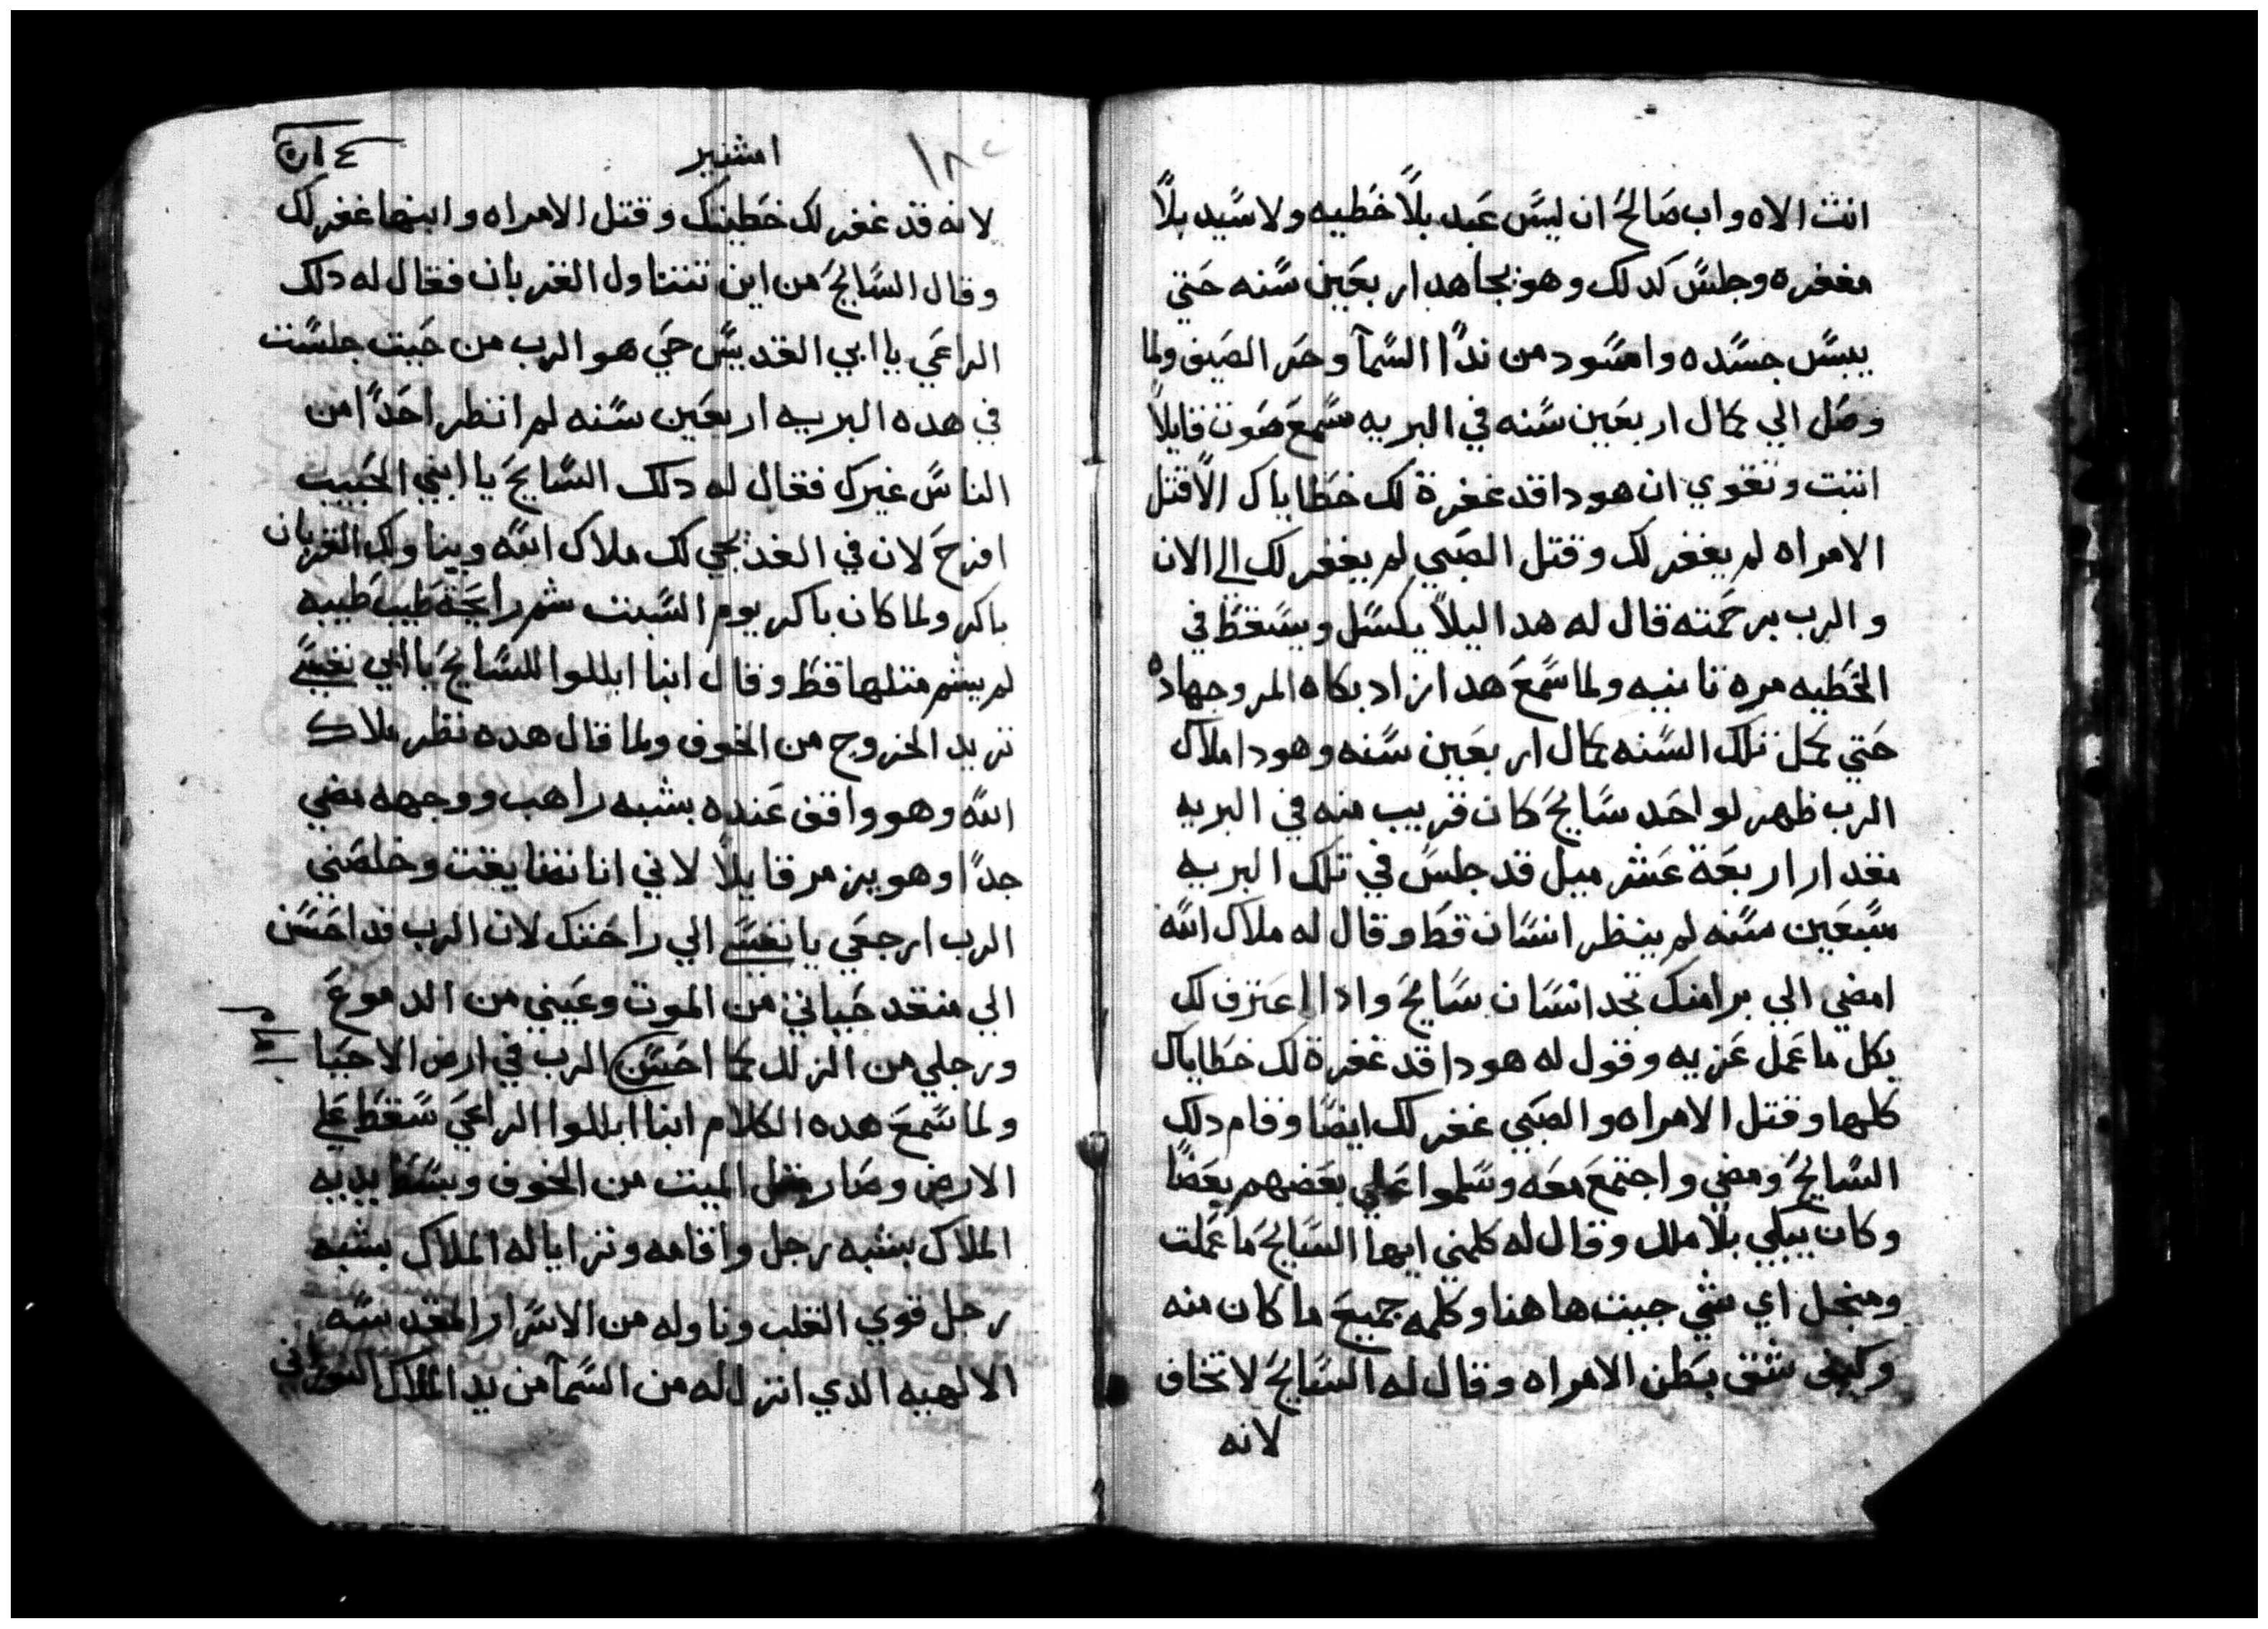 انت الاه واب صالح ان ليس عبد بلا خطيه ولا سيد بلا
مغفره وجلس كدلك وهو يجاهد اربعين سنه حتي
يبس جسده واسود من ندا السمآ وحر الصيف ولما
وصل الي كمال اربعين سنه في البريه سمع صوت قايلا
اتبت وتقوي ان هودا قد غفرة لك خطاياك الا قتل
الامراه لم يغفر لك وقتل الصبي لم يغفر لك الي الان
والرب برحمته قال له هدا ليلا يكسل ويسقط في
الخطيه مره تانيه ولما سمع هدا زاد بكاه المر وجهاده
حتي كمل تلك السنه كمال اربعين سنه وهودا ملاك
الرب ظهر لواحد سايح كان قريب منه في البريه
مقدار اربعة عشر ميل قد جلس في تلك البريه
سبعين سنه لم ينظر انسان قط وقال له ملاك الله
امضي الي برامنك تجد انسان سايح وادا اعترف لك
بكل ما عمل عزيه وقول له هودا قد غفرة لك خطاياك
كلها وقتل الامراه والصبي غفر لك ايضا وقام دلك
السايح ومضي واجتمع معه وسلموا علي بعضهم بعضا
وكان يبكي بلا ملل وقال له كلمني ايها السايح ما عملت
ومنجل اي شي جيت هاهنا وكلمه جميع ما كان منه
وكيف شق بطن الامراه وقال له السايح لا تخاف
لانه
امشير
لانه قد غفر لك خطيتك وقتل الامراه وابنها غفر لك
وقال السايح من اين تتناول القربان فقال له دلك
الراعي يا ابي القديس حي هو الرب من حيت جلست
في هده البريه اربعين سنه لم انظر احدا من
الناس غيرك فقال له دلك السايح يا ابني الحبيب
افرح لان في الغد يجي لك ملاك الله ويناولك القربان
باكر ولما كان باكر يوم السبت شم رايحة طيب طيبه
لم يشم متلها قط وقال انبا ابللوا للسايح يا ابي نفسي
تريد الخروج من الخوف ولما قال هده نظر ملاك
الله وهو واقف عنده بشبه راهب ووجهه مضي
جدا وهو يزمر قايلا لاني انا تضايقت وخلصني
الرب ارجعي يا نفسي الي راحتك لان الرب قد احسن
الي منقد حياتي من الموت وعيني من الدموع
ورجلي من الزلل كما احسن الرب في ارض الاحيا
ولما سمع هده الكلام انبا ابللوا الراعي سقط علي
الارض وصار متل الميت من الخوف وبسط يديه
الملاك بشبه رجل واقامه وترايا له الملاك بشبه
رجل قوي القلب وناوله من الاسرار المقدسه
الالهيه الدي انزل له من السمآ من يد الملاك النوراني